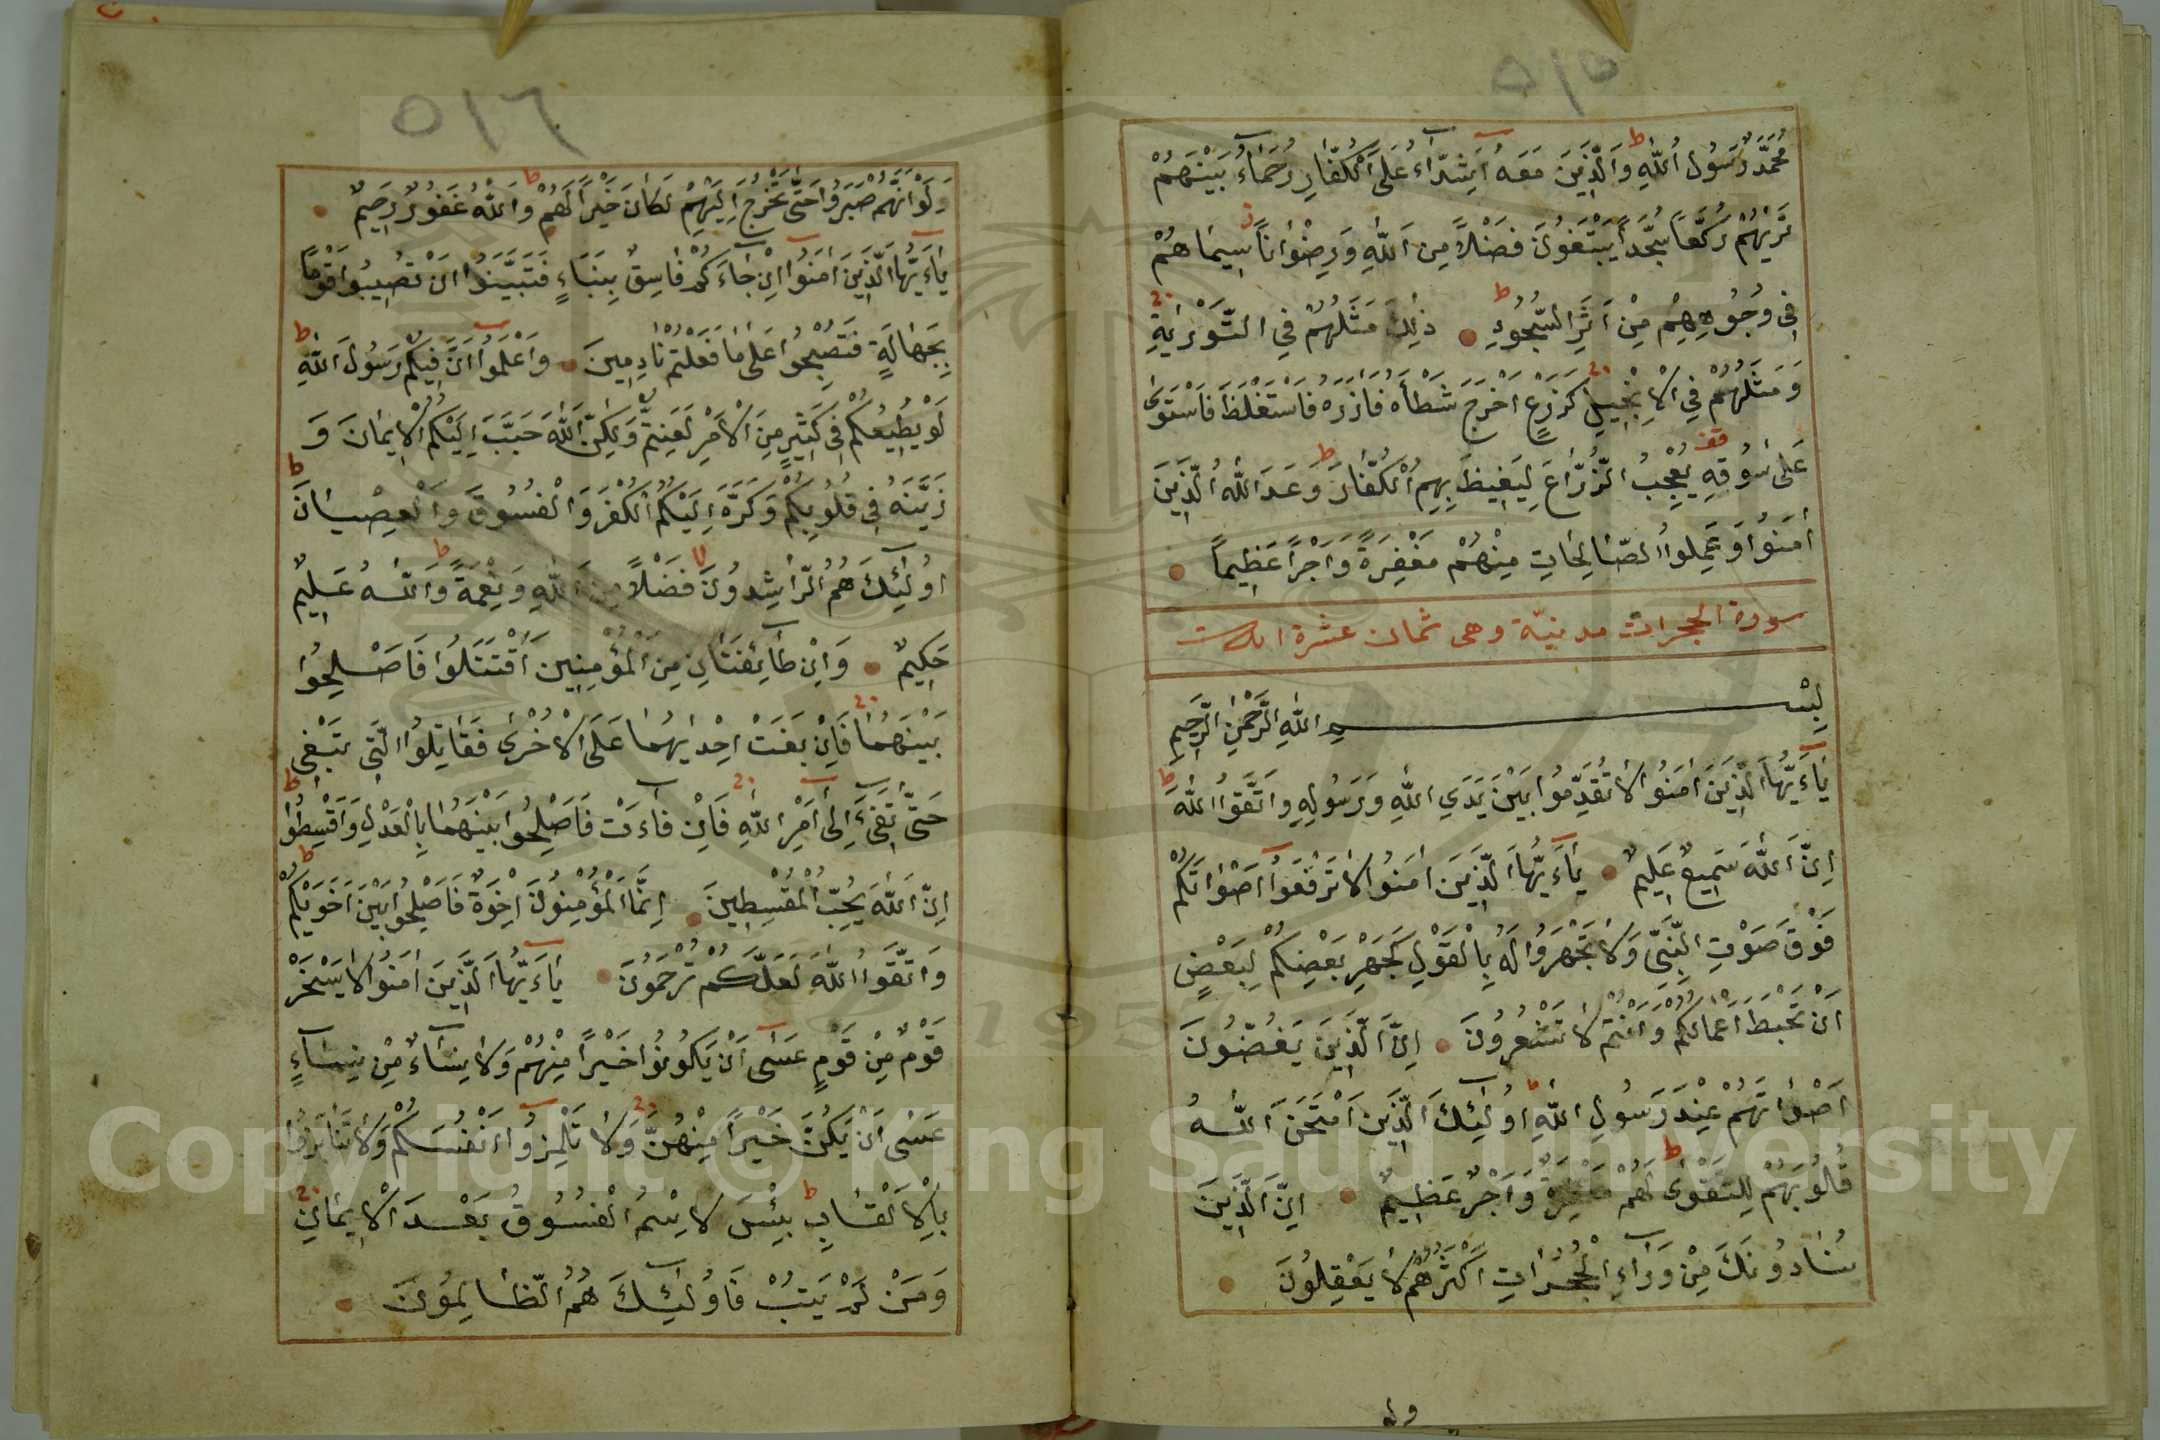 ٥١٥
مُحَمَّدٌ رَسُولُ اللّٰهِ وَالَّذِينَ مَعَهُ أَشِدَّاءُ عَلَى الْكُفَّارِ رُحَمَاءُ بَيْنَهُمْ
تَرٰيهُمْ رُكَّعًا سُجَّدًا يَبْتَغُونَ فَضْلًا مِنَ اللّٰهِ وَرِضْوَانًا سِيمَاهُمْ
فِي وُجُوهِهِمْ مِنْ أَثَرِ السُّجُودِ ذٰلِكَ مَثَلُهُمْ فِي التَّوْرٰيةِ
وَمَثَلُهُمْ فِي الْإِنْجِيلِ كَزَرْعٍ أَخْرَجَ شَطْأَهُ فَآزَرَهُ فَاسْتَغْلَظَ فَاسْتَوٰى
عَلٰى سُوقِهِ يُعْجِبُ الزُّرَّاعَ لِيَغِيظَ بِهِمُ الْكُفَّارَ وَعَدَ اللّٰهُ الَّذِينَ
اٰمَنُوا وَعَمِلُوا الصَّالِحَاتِ مِنْهُمْ مَغْفِرَةً وَأَجْرًا عَظِيمًا
سورة الحجرات مدنيّة وهى ثمان عشرة ايات
بِسْمِ اللّٰهِ الرَّحْمٰنِ الرَّحِيمِ
يَاءَيُّهَا الَّذِينَ اٰمَنُوا لَا تُقَدِّمُوا بَيْنَ يَدَيِ اللّٰهِ وَرَسُولِهِ وَاتَّقُوا اللّٰهَ
اِنَّ اللّٰهَ سَمِيعٌ عَلِيمٌ يَاءَيُّهَا الَّذِينَ اٰمَنُوا لَا تَرْفَعُوا أَصْوَاتَكُمْ
فَوْقَ صَوْتِ النَّبِيِّ وَلَا تَجْهَرُوا لَهُ بِالْقَوْلِ كَجَهْرِ بَعْضِكُمْ لِبَعْضٍ
اَنْ تَحْبَطَ أَعْمَالُكُمْ وَأَنْتُمْ لَا تَشْعُرُونَ اِنَّ الَّذِينَ يَغُضُّونَ
اَصْوَاتَهُمْ عِنْدَ رَسُولِ اللّٰهِ اُولٰئِكَ الَّذِينَ امْتَحَنَ اللّٰهُ
قُلُوبَهُمْ لِلتَّقْوٰى لَهُمْ مَغْفِرَةٌ وَأَجْرٌ عَظِيمٌ اِنَّ الَّذِينَ
يُنَادُونَكَ مِنْ وَرَاءِ الْحُجُرَاتِ أَكْثَرُهُمْ لَا يَعْقِلُونَ
ولو
٥١٦
وَلَوْ أَنَّهُمْ صَبَرُوا حَتَّى تَخْرُجَ اِلَيْهِمْ لَكَانَ خَيْرًا لَهُمْ وَاللّٰهُ غَفُورٌ رَحِيمٌ
يَاءَيُّهَا الَّذِينَ اٰمَنُوا اِنْ جَاءَكُمْ فَاسِقٌ بِنَبَاءٍ فَتَبَيَّنُوا اَنْ تُصِيبُوا قَوْمًا
بِجَهَالَةٍ فَتُصْبِحُوا عَلٰى مَا فَعَلْتُمْ نَادِمِينَ وَاعْلَمُوا اَنَّ فِيكُمْ رَسُولَ اللّٰهِ
لَوْ يُطِيعُكُمْ فِي كَثِيرٍ مِنَ الْأَمْرِ لَعَنِتُّمْ وَلٰكِنَّ اللّٰهَ حَبَّبَ اِلَيْكُمُ الْإِيمَانَ وَ
زَيَّنَهُ فِي قُلُوبِكُمْ وَكَرَّهَ اِلَيْكُمُ الْكُفْرَ وَالْفُسُوقَ وَالْعِصْيَانَ
اُولٰئِكَ هُمُ الرَّاشِدُونَ فَضْلًا مِنَ اللّٰهِ وَنِعْمَةً وَاللّٰهُ عَلِيمٌ
حَكِيمٌ وَاِنْ طَائِفَتَانِ مِنَ الْمُؤْمِنِينَ اقْتَتَلُوا فَاَصْلِحُوا
بَيْنَهُمَا فَاِنْ بَغَتْ اِحْدٰيهُمَا عَلَى الْأُخْرٰى فَقَاتِلُوا الَّتِي تَبْغِي
حَتَّى تَفِيءَ اِلٰى أَمْرِ اللّٰهِ فَاِنْ فَاءَتْ فَاَصْلِحُوا بَيْنَهُمَا بِالْعَدْلِ وَاَقْسِطُوا
اِنَّ اللّٰهَ يُحِبُّ الْمُقْسِطِينَ اِنَّمَا الْمُؤْمِنُونَ اِخْوَةٌ فَاَصْلِحُوا بَيْنَ اَخَوَيْكُمْ
وَاتَّقُوا اللّٰهَ لَعَلَّكُمْ تُرْحَمُونَ يَاءَيُّهَا الَّذِينَ اٰمَنُوا لَا يَسْخَرْ
قَوْمٌ مِنْ قَوْمٍ عَسٰى اَنْ يَكُونُوا خَيْرًا مِنْهُمْ وَلَا نِسَاءٌ مِنْ نِسَاءٍ
عَسٰى اَنْ يَكُنَّ خَيْرًا مِنْهُنَّ وَلَا تَلْمِزُوا اَنْفُسَكُمْ وَلَا تَنَابَزُوا
بِالْأَلْقَابِ بِئْسَ لِاسْمُ الْفُسُوقُ بَعْدَ الْإِيمَانِ
وَمَنْ لَمْ يَتُبْ فَاُولٰئِكَ هُمُ الظَّالِمُونَ
Copyright © King Saud University
1957